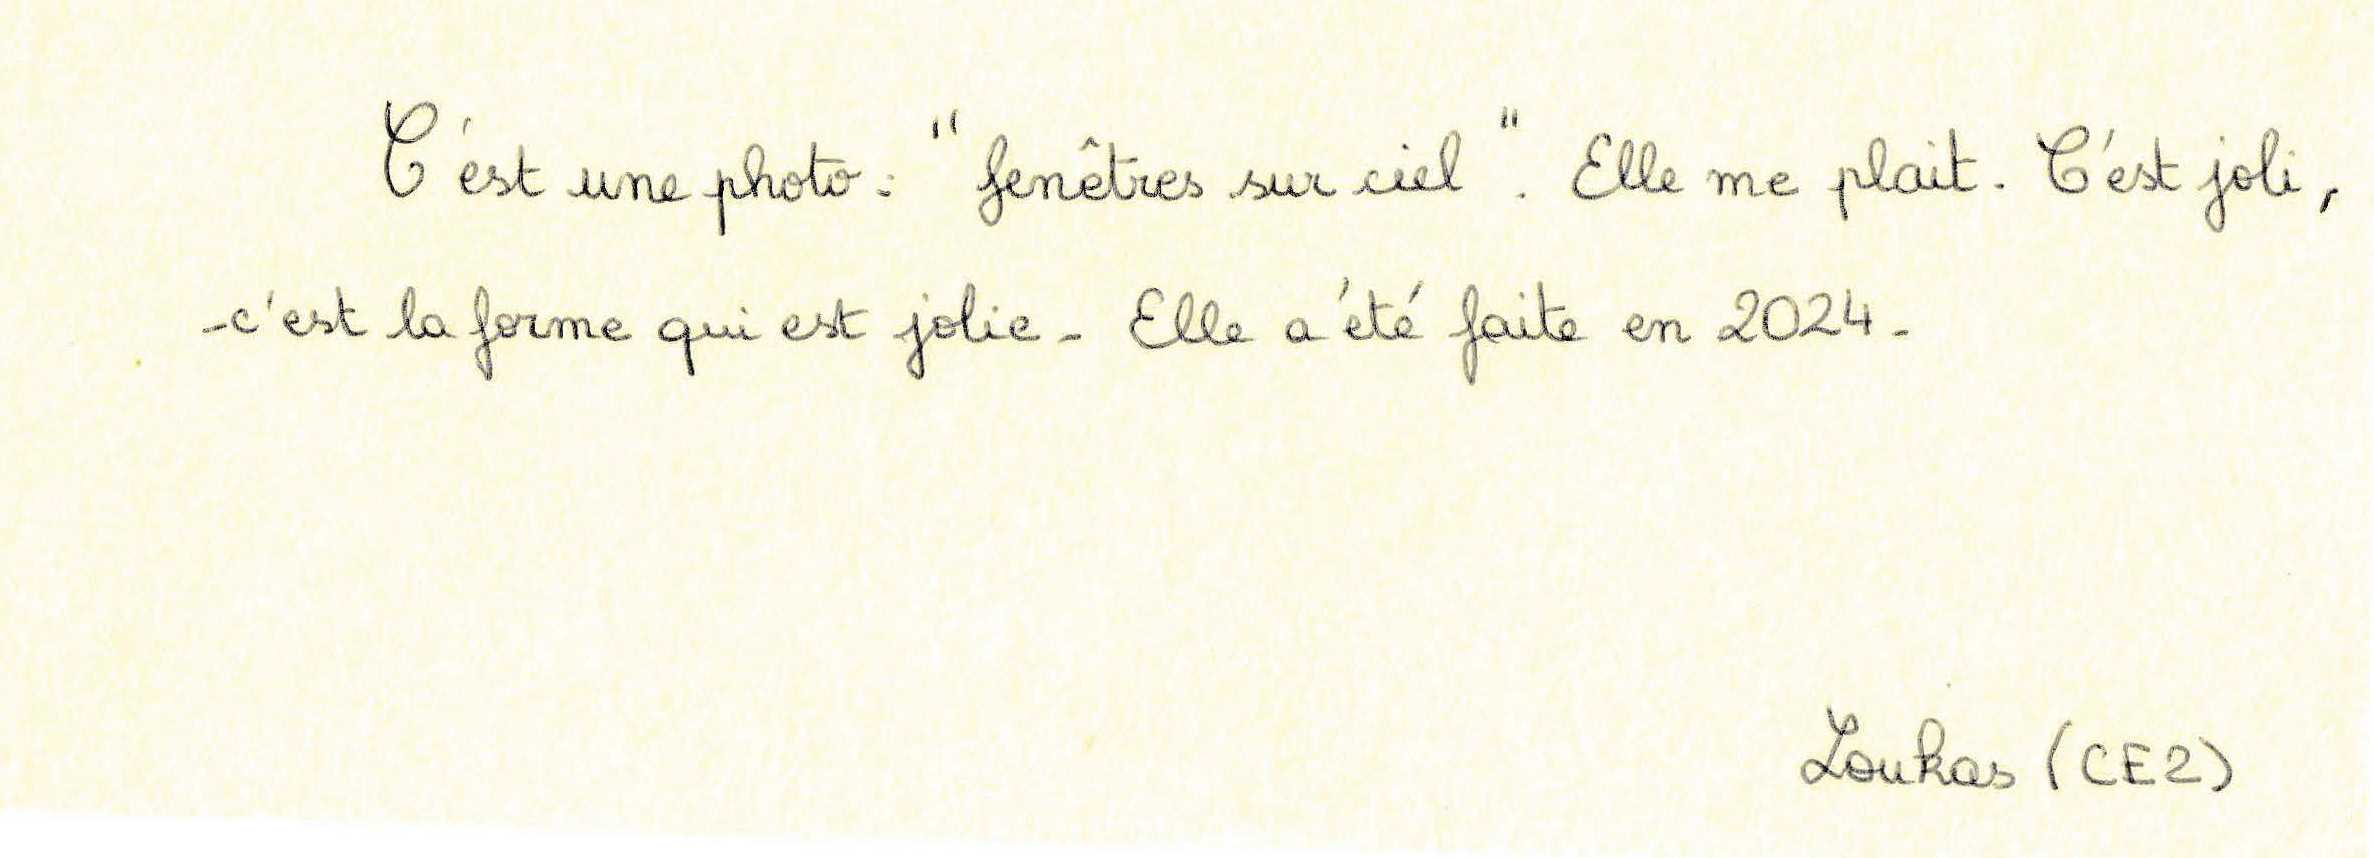 C'est une photo : "fenêtres sur ciel". Elle me plait. C'est joli,
-c'est la forme qui est jolie - Elle a été faite en 2024-
Loukas (CE2)